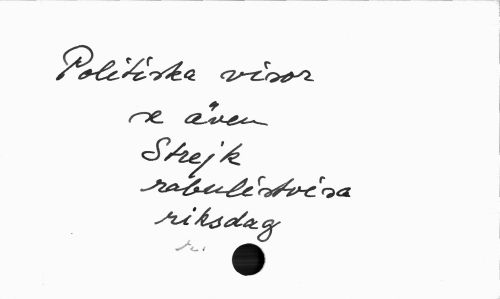 Politiska visor
se även
Strejk
rabulistvisa
riksdag